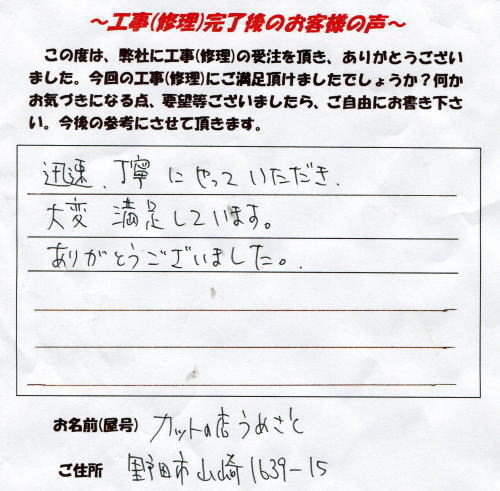 ～工事(修理)完了後のお客様の声～
この度は、弊社に工事(修理)の受注を頂き、ありがとうござい
ました。今回の工事(修理)にご満足頂けましたでしょうか？何か
お気づきになる点、要望等ございましたら、ご自由にお書き下さ
い。今後の参考にさせて頂きます。
迅速、丁寧にやっていただき、
大変満足しています。
ありがとうございました。
お名前(屋号) カットの店うめざと
ご住所 野田市山崎1639-15